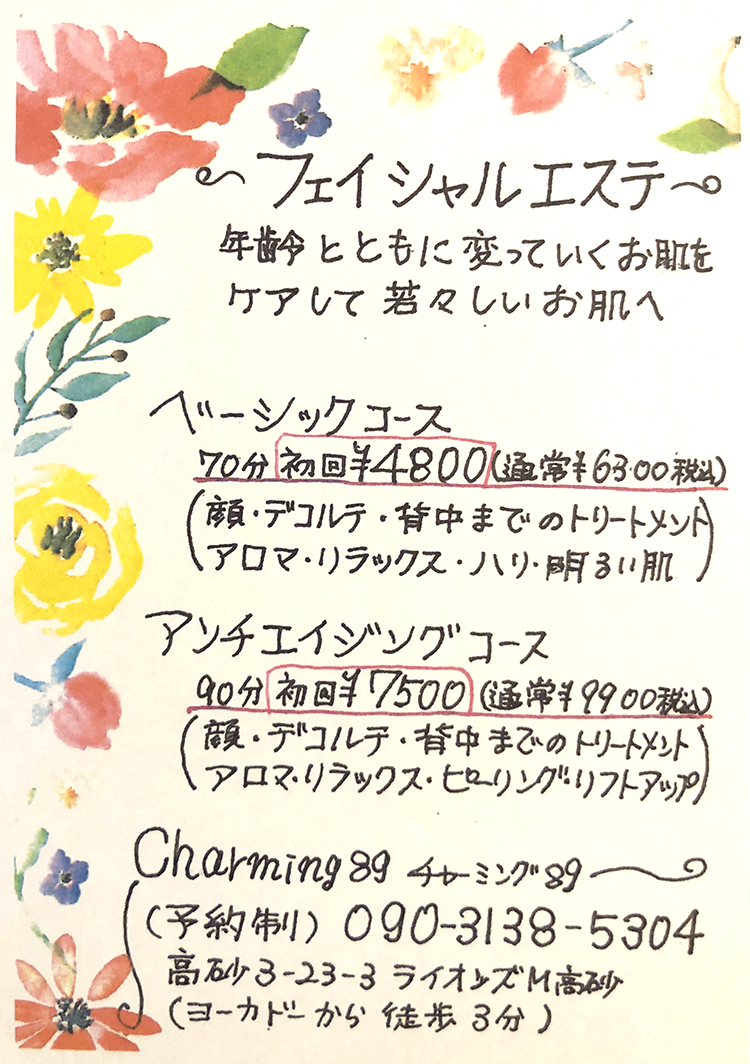 フェイシャルエステ
年齢とともに変っていくお肌を
ケアして若々しいお肌へ
ベーシックコース
70分 初回¥4800 (通常¥6300税込)
(顔・デコルテ・背中までのトリートメント
アロマ・リラックス・ハリ・明るい肌)
アンチエイジングコース
90分 初回¥7500 (通常¥9900税込)
(顔・デコルテ・背中までのトリートメント
アロマ・リラックス・ピーリング・リフトアップ)
Charming89 チャーミング89
(予約制) 090-3138-5304
高砂3-23-3 ライオンズM高砂
(ヨーカドーから徒歩3分)